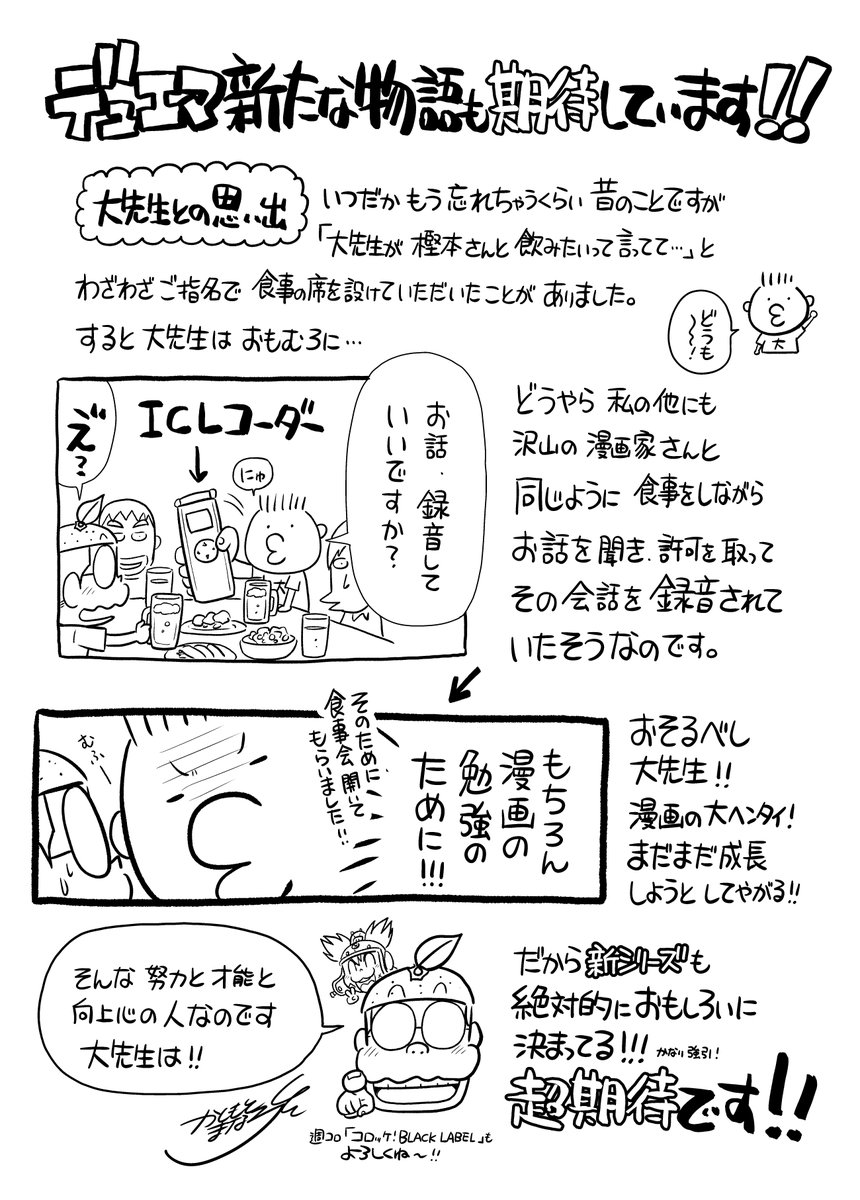 デュエマ新たな物語も期待しています!!
大先生との思い出
いつだか もう忘れちゃうくらい 昔のことですが
「大先生が 樫本さんと 飲みたいって言ってて…」と
わざわざ ご指名で 食事の席を設けていただいたことが ありました。
すると 大先生は おもむろに…
どうも
〜!
大
ICレコーダー
え゛?
にゅ
お話、録音して
いいですか?
どうやら 私の他にも
沢山の 漫画家さんと
同じように 食事をしながら
お話を聞き、許可を取って
その会話を 録音されて
いたそうなのです。
もちろん
漫画の
勉強の
ために!!!
そのために
食事会 開いて
もらいました!!
むふー
おそるべし
大先生!!
漫画の大ヘンタイ!
まだまだ成長
しようと してやがる!!
そんな 努力と才能と
向上心の人なのです
大先生は!!
だから新シリーズも
絶対的におもしろいに
決まってる!!! かなり強引!
超期待です!!
週コロ「コロッケ!BLACK LABEL」も
よろしくね〜!!